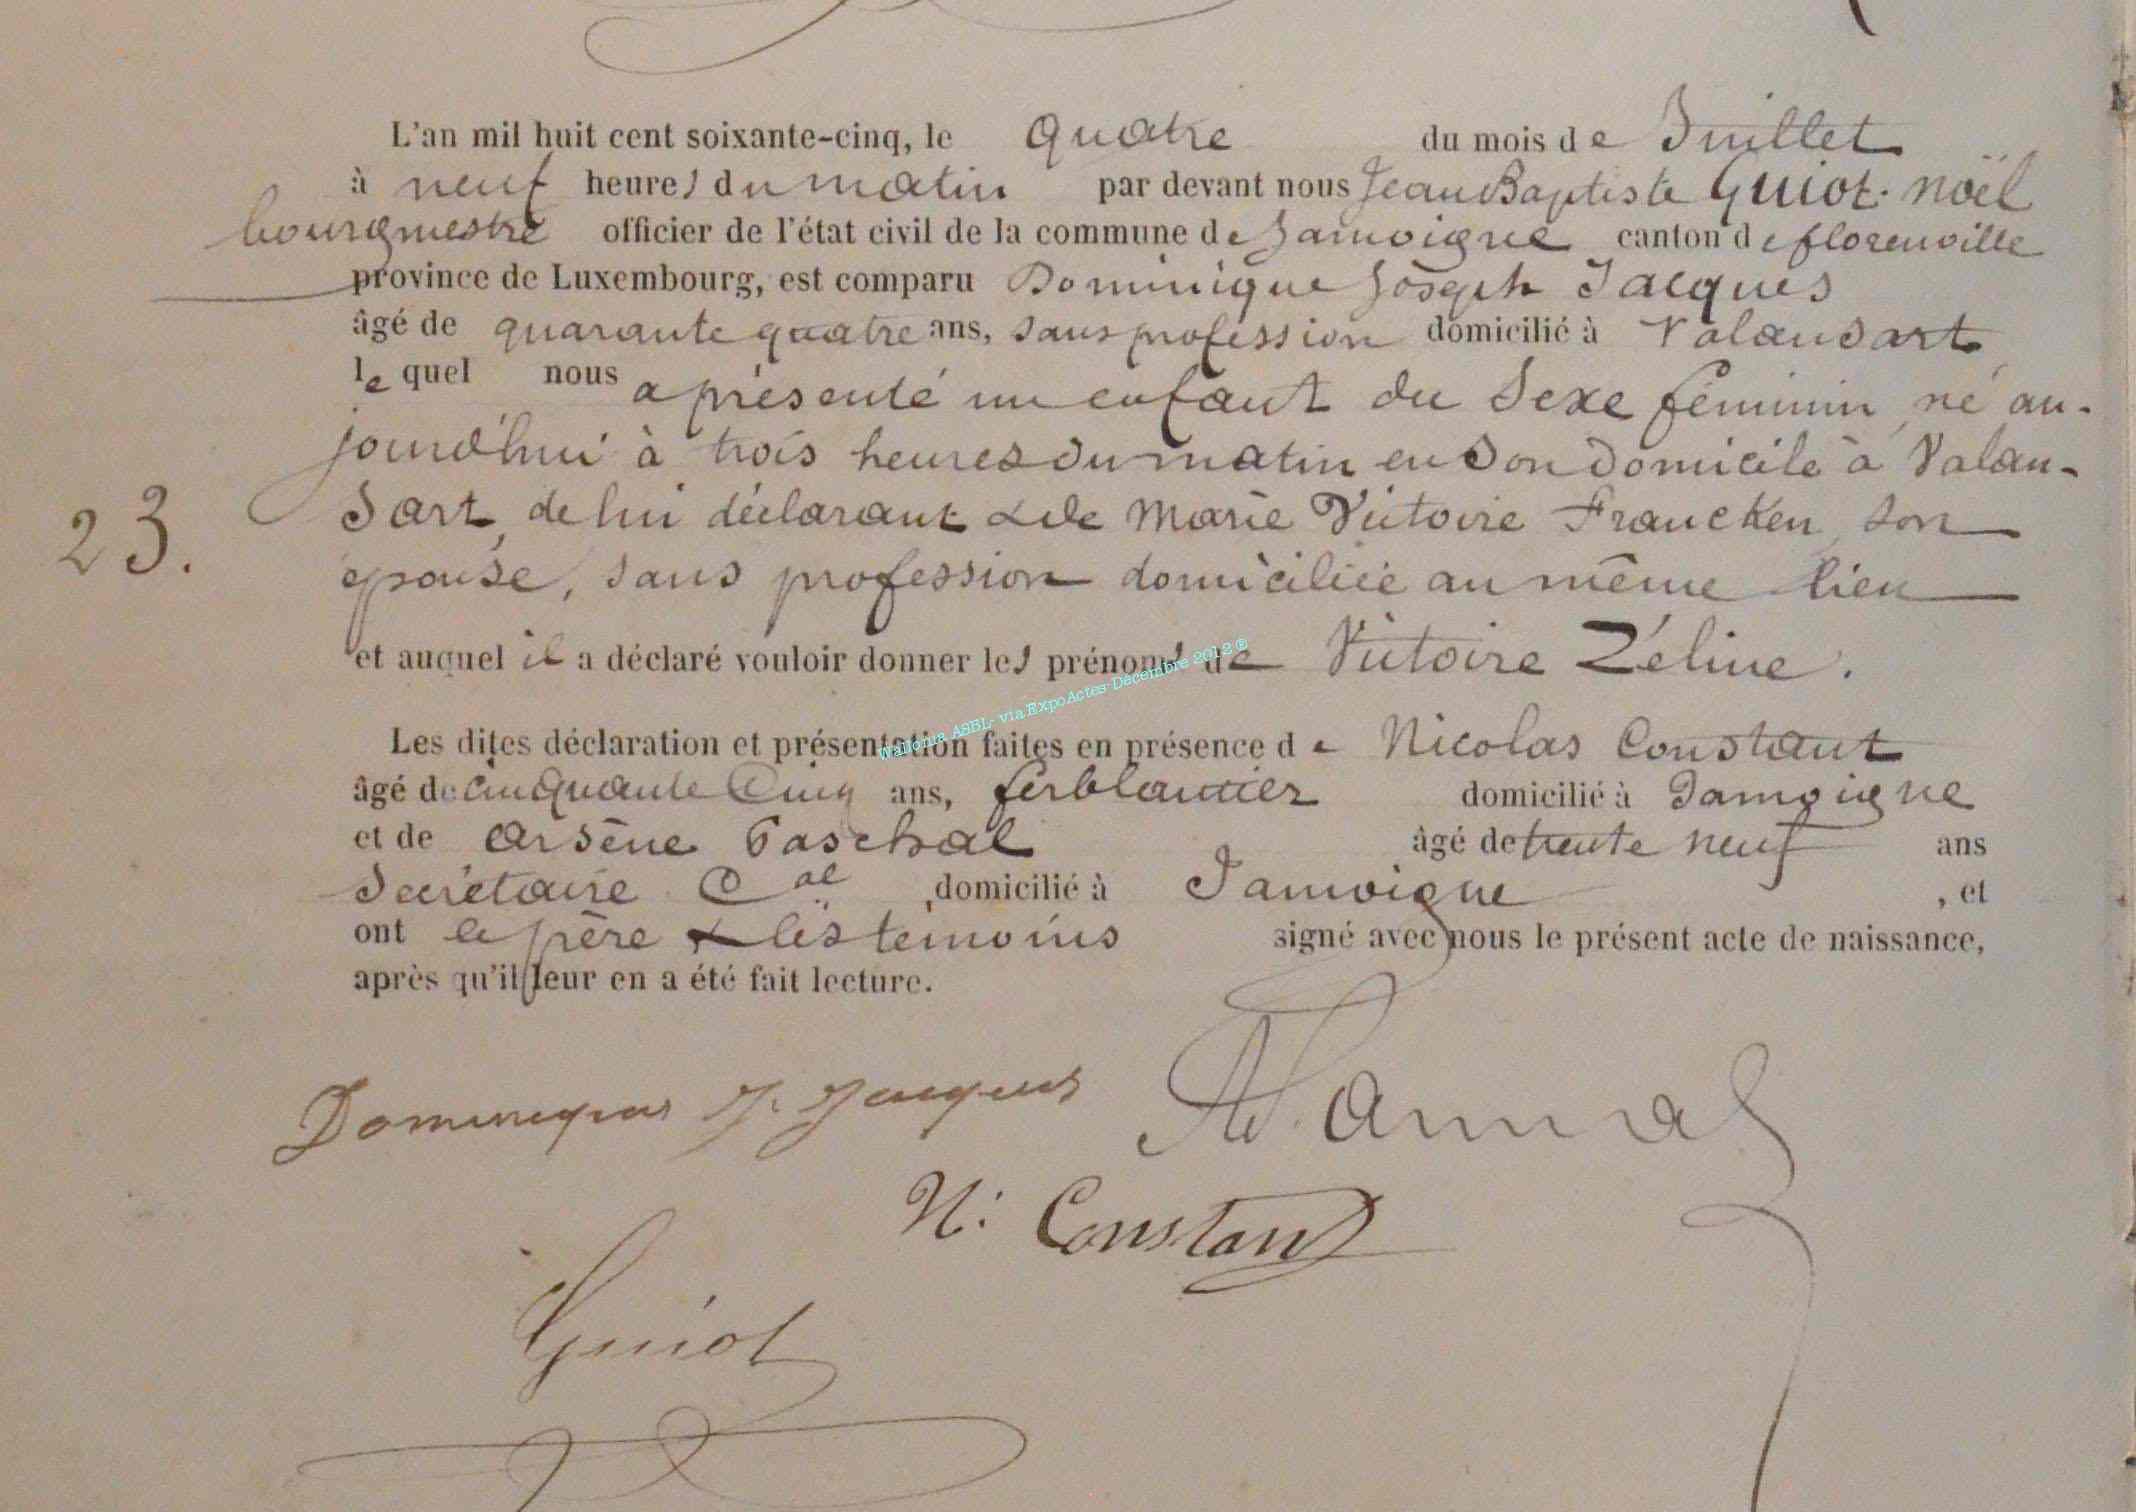 L'an mil huit cent soixante-cinq, le quatre du mois de Juillet
à neuf heures du matin par devant nous Jean Baptiste Guiot-noël
bourgmestre officier de l'état civil de la commune de Jamoigne canton de florenville
province de Luxembourg, est comparu Dominique Joseph Jacques
âgé de quarante quatre ans, sans profession domicilié à Valansart
lequel nous a présenté un enfant du Sexe féminin, né au-
jourd'hui à trois heures du matin en son domicile à Valan-
23. Sart, de lui déclarant & de Marie Victoire Francken, son
épouse, sans profession domiciliée au même lieu
et auquel il a déclaré vouloir donner les prénoms de Victoire Zéline.
Wallonia ASBL- via ExpoActes-Décembre 2012 ®
Les dites déclaration et présentation faites en présence de Nicolas Constant
âgé de cinquante Cinq ans, ferblantier domicilié à Jamoigne
et de Arsène Paschal âgé de trente neuf ans
Secrétaire Cal domicilié à Jamoigne, et
ont le père & les témoins signé avec nous le présent acte de naissance,
après qu'il leur en a été fait lecture.
Dominique J. Jacques
N: Constant
Guiot